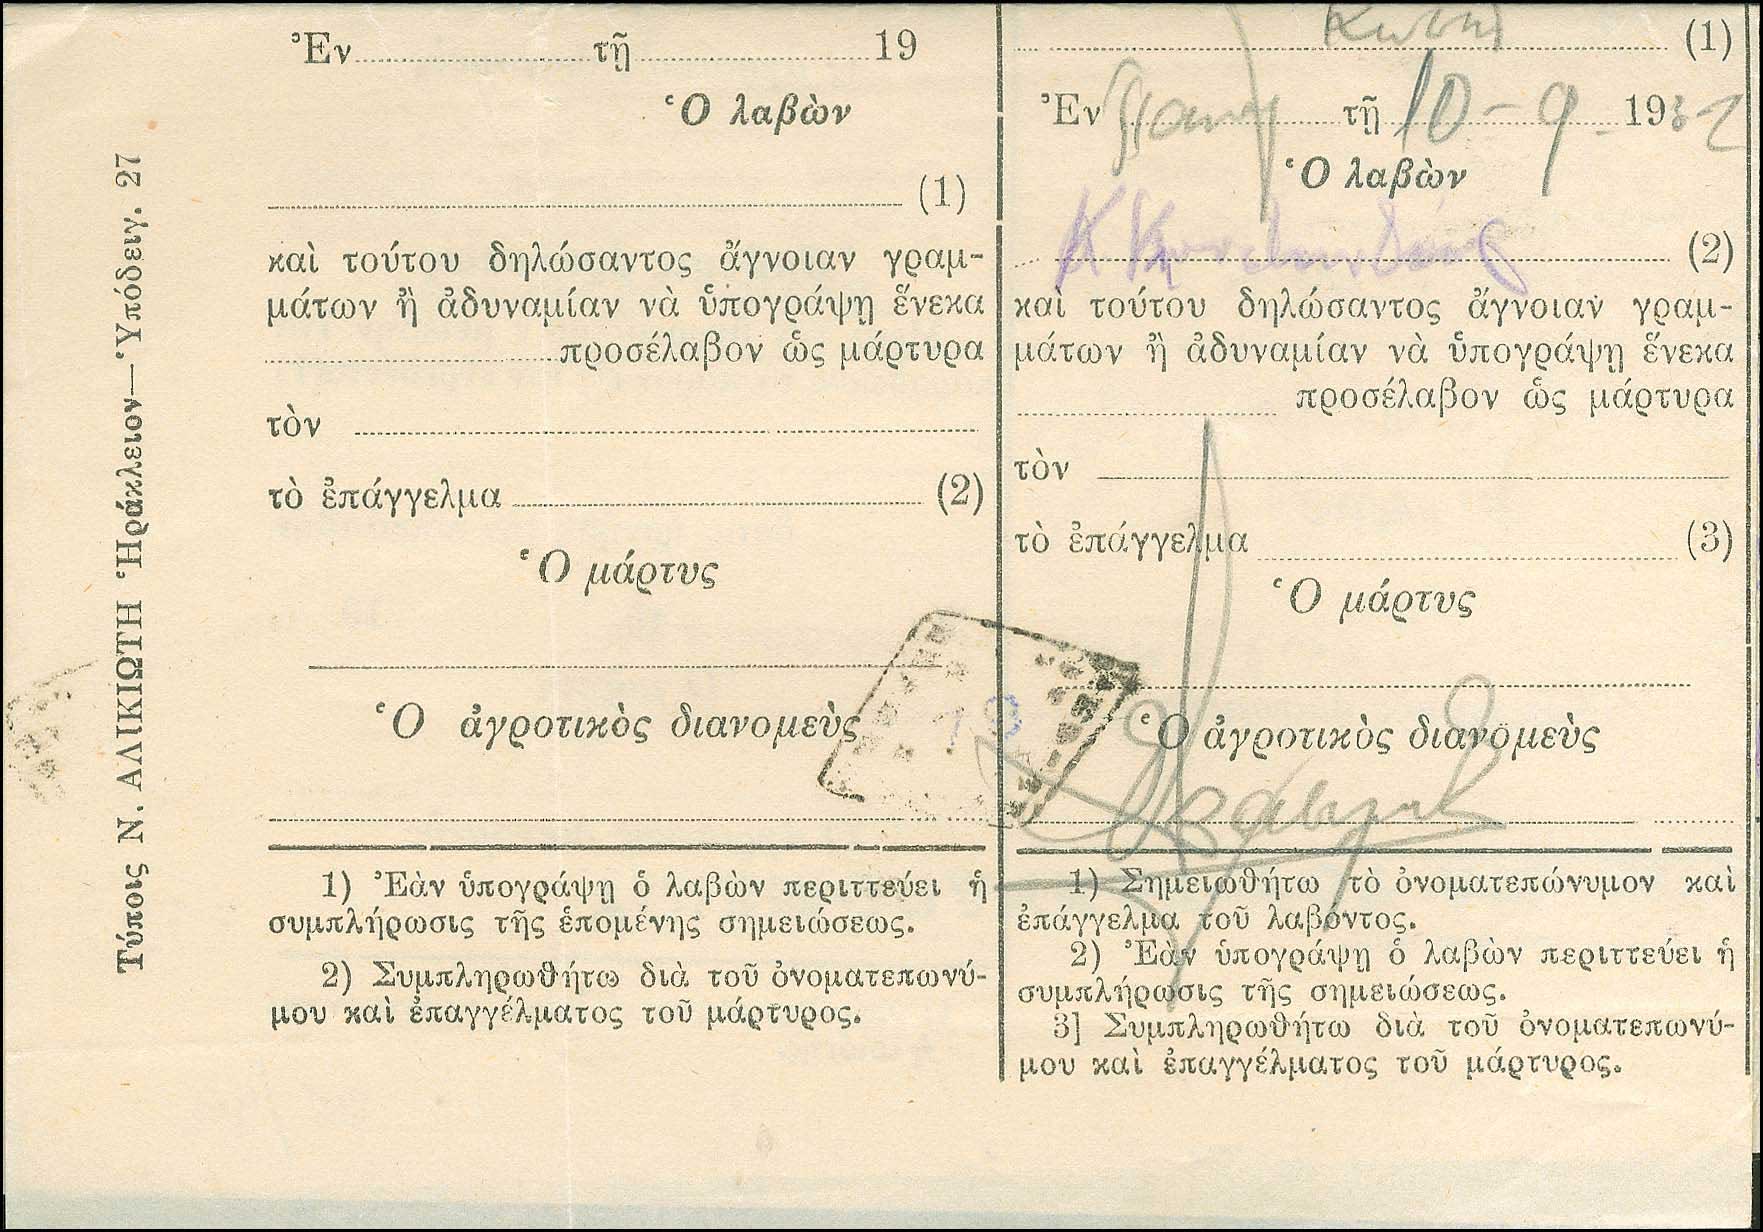 Τύποις Ν. ΑΛΙΚΙΩΤΗ Ἡράκλειον—Ὑπόδειγ. 27
Ἐν τῇ 19
Ὁ λαβὼν
(1)
καὶ τούτου δηλώσαντος ἄγνοιαν γραμ-
μάτων ἢ ἀδυναμίαν νὰ ὑπογράψῃ ἕνεκα
προσέλαβον ὡς μάρτυρα
τὸν
τὸ ἐπάγγελμα (2)
Ὁ μάρτυς
Ὁ ἀγροτικὸς διανομεὺς
1) Ἐὰν ὑπογράψῃ ὁ λαβὼν περιττεύει ἡ
συμπλήρωσις τῆς ἑπομένης σημειώσεως.
2) Συμπληρωθήτω διὰ τοῦ ὀνοματεπωνύ-
μου καὶ ἐπαγγέλματος τοῦ μάρτυρος.
(1)
Ἐν τῇ 10-9 1932
Ὁ λαβὼν
(2)
καὶ τούτου δηλώσαντος ἄγνοιαν γραμ-
μάτων ἢ ἀδυναμίαν νὰ ὑπογράψῃ ἕνεκα
προσέλαβον ὡς μάρτυρα
τὸν
τὸ ἐπάγγελμα (3)
Ὁ μάρτυς
Ὁ ἀγροτικὸς διανομεὺς
1) Σημειωθήτω τὸ ὀνοματεπώνυμον καὶ
ἐπάγγελμα τοῦ λαβόντος.
2) Ἐὰν ὑπογράψῃ ὁ λαβὼν περιττεύει ἡ
συμπλήρωσις τῆς σημειώσεως.
3] Συμπληρωθήτω διὰ τοῦ ὀνοματεπωνύ-
μου καὶ ἐπαγγέλματος τοῦ μάρτυρος.